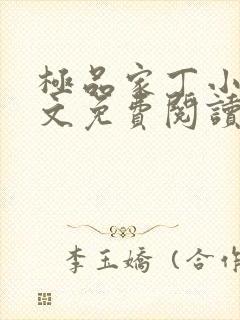 極品家丁小
文免費閱讀
李玉嬌 (合作